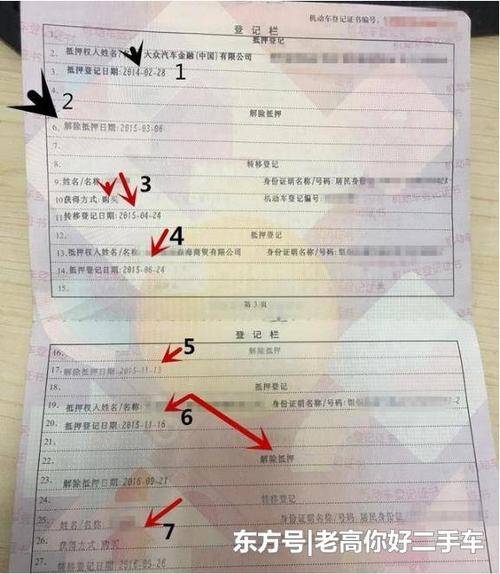 登记栏
机动车登记证书编号:
1.
抵押登记
2. 抵押权人姓名/名称: 大众汽车金融(中国)有限公司
3. 抵押登记日期:2014-02-28
1
4.
2
5. 解除抵押
6. 解除抵押日期:2015-03-06
7.
8. 转移登记
9. 姓名/名称: 身份证明名称/号码:居民身份
3
10. 获得方式:购买 机动车登记编号:
11. 转移登记日期:2015-04-24
12. 抵押登记
4
13. 抵押权人姓名/名称: 鑫海商贸有限公司 身份证明名称/号码:组
14. 抵押登记日期:2015-06-24
15.
第3页
登记栏
16. 解除抵押
5
17. 解除抵押日期:2015-11-13
18. 抵押登记
19. 抵押权人姓名/名称: 身份证明名称/号码:组
6
20. 抵押登记日期:2015-11-16
21.
22. 解除抵押
23. 解除抵押日期:2016-09-21
24. 转移登记
25. 姓名/名称: 身份证明名称/号码:
7
26. 获得方式:购买
27.
东方号|老高你好二手车